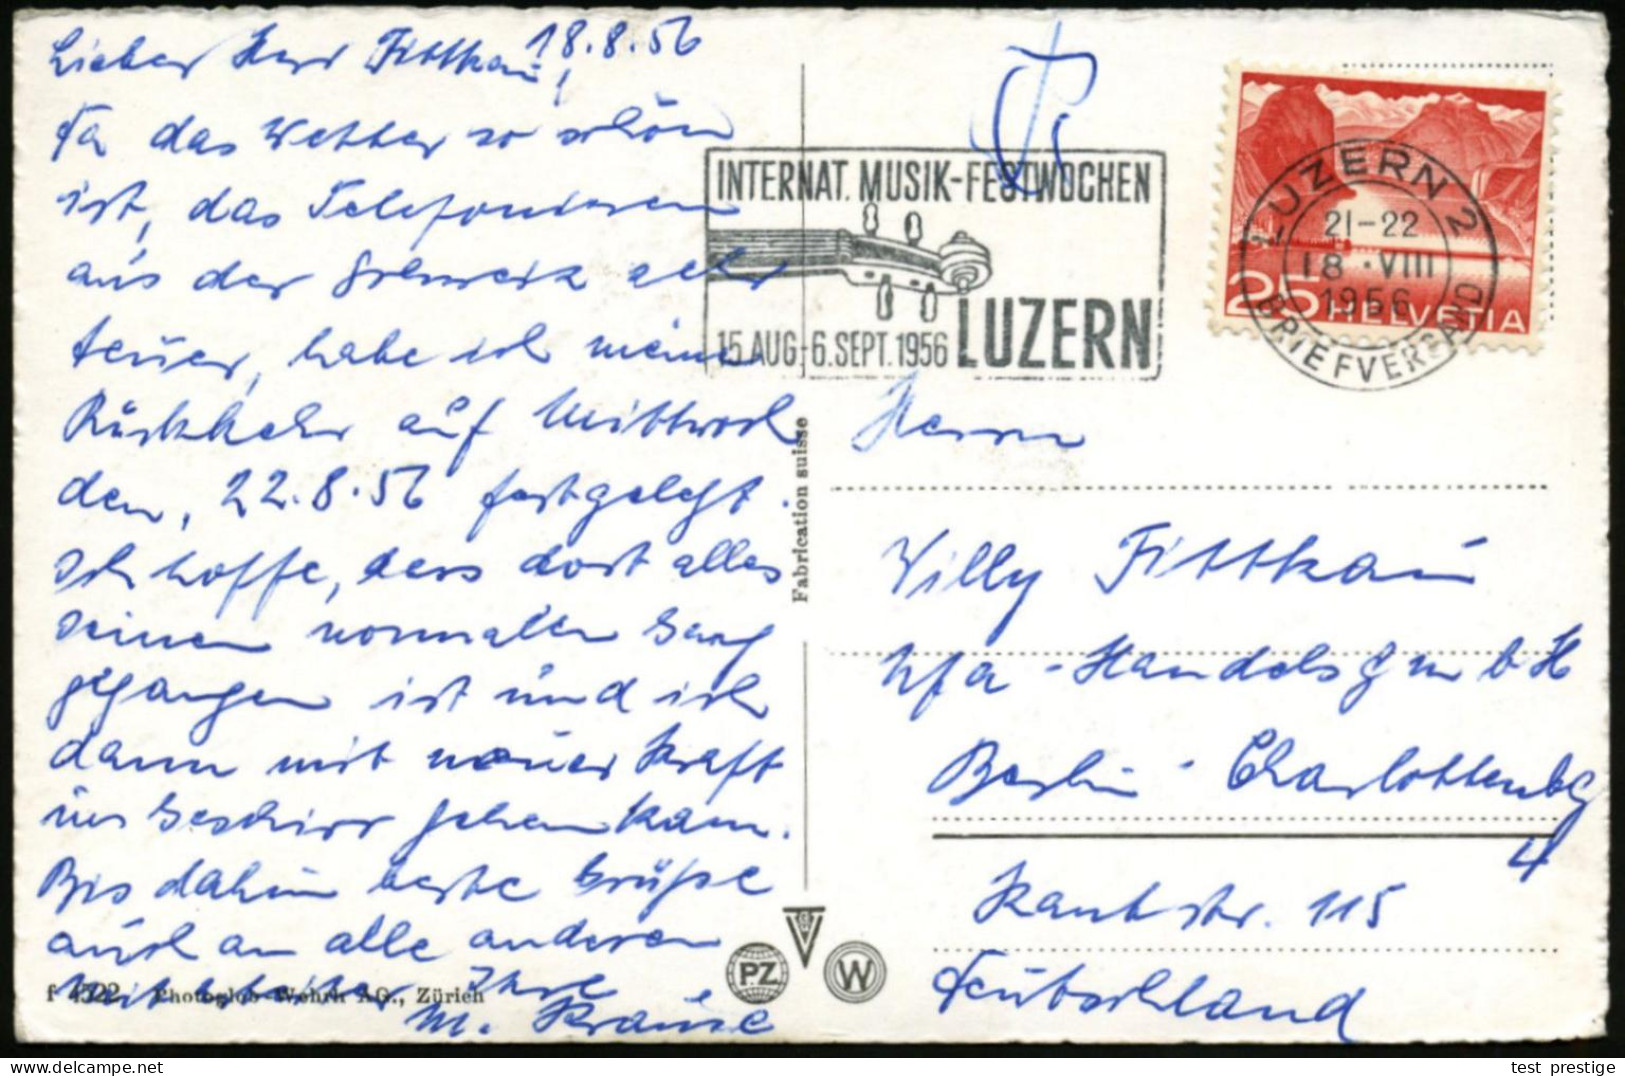 18.8.56
Lieber Herr Fittkau!
Da das Wetter so schön
ist, das Telefonieren
aus der Schweiz sehr
teuer, habe ich meine
Rückkehr auf Mittwoch
den, 22.8.56 festgelegt.
Ich hoffe, dass dort alles
seinen normalen Gang
gegangen ist und ich
dann mit neuer Kraft
ins Geschirr gehen kann.
Bis dahin beste Grüße
auch an alle anderen
Mitarbeiter Ihre
M. Krause
f 4522 Photoglob-Wehrli AG., Zürich
Fabrication suisse
PZ
W
INTERNAT. MUSIK-FESTWOCHEN
15. AUG.-6. SEPT. 1956 LUZERN
LUZERN 2
21-22
18.VIII
1956
BRIEFVERSAND
25 HELVETIA
Herrn
Willy Fittkau
Ufa-Handelsgmbh
Berlin-Charlottenbg
4
Kantstr. 115
Deutschland
test prestige